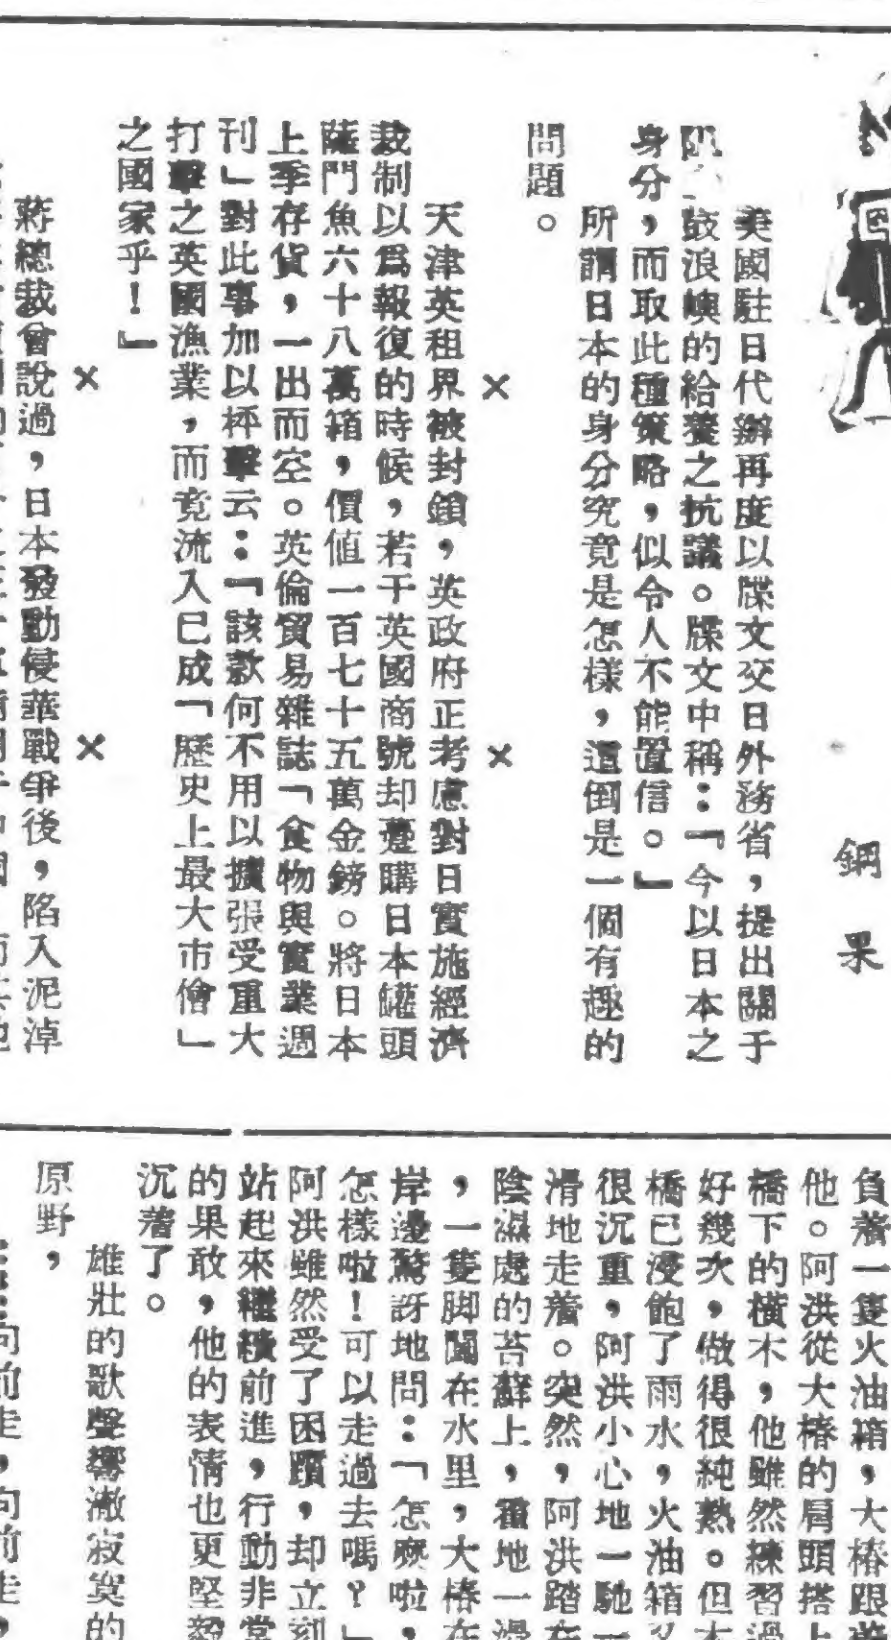 鋼果
美國駐日代辦再度以牒文交日外務省，提出關于
鼓浪嶼的給養之抗議。牒文中稱：『今以日本之
身分，而取此種策略，似令人不能置信。』
所謂日本的身分究竟是怎樣，這倒是一個有趣的
問題。
×　×
天津英租界被封鎖，英政府正考慮對日實施經濟
裁制以爲報復的時候，若干英國商號却躉購日本罐頭
薩門魚六十八萬箱，價值一百七十五萬金鎊。將日本
上季存貨，一出而空。英倫貿易雜誌「食物與實業週
刊」對此事加以抨擊云：『該款何不用以擴張受重大
打擊之英國漁業，而竟流入已成「歷史上最大市儈」
之國家乎！』
×　×
蔣總裁會說過，日本發動侵華戰爭後，陷入泥淖
負着一隻火油箱，大椿跟着
他。阿洪從大椿的肩頭搭上
橋下的橫木，他雖然練習過
好幾次，做得很純熟。但木
橋已浸飽了雨水，火油箱又
很沉重，阿洪小心地一馳一
滑地走着。突然，阿洪踏在
陰濕處的苔蘚上，霍地一滑
，一隻脚闖在水里，大椿在
岸邊驚訝地問：「怎麽啦，
怎樣啦！可以走過去嗎？」
阿洪雖然受了困躓，却立刻
站起來繼續前進，行動非常
的果敢，他的表情也更堅毅
沉着了。
雄壯的歌聲響澈寂寞的
原野，
向前走，向前走，